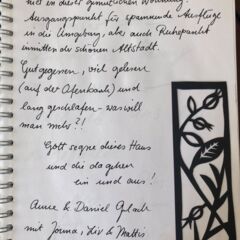 hier in dieser gemütlichen Wohnung.
Ausgangspunkt für spannende Ausflüge
in die Umgebung, aber auch Ruhepunkt
inmitten der schönen Altstadt.
Gut gegessen, viel gelesen
(auf der Ofenbank) und
lang geschlafen - was will
man mehr?!
Gott segne dieses Haus
und die da gehen
ein und aus!
Anna & Daniel
mit Jonna, Liv & Mattis